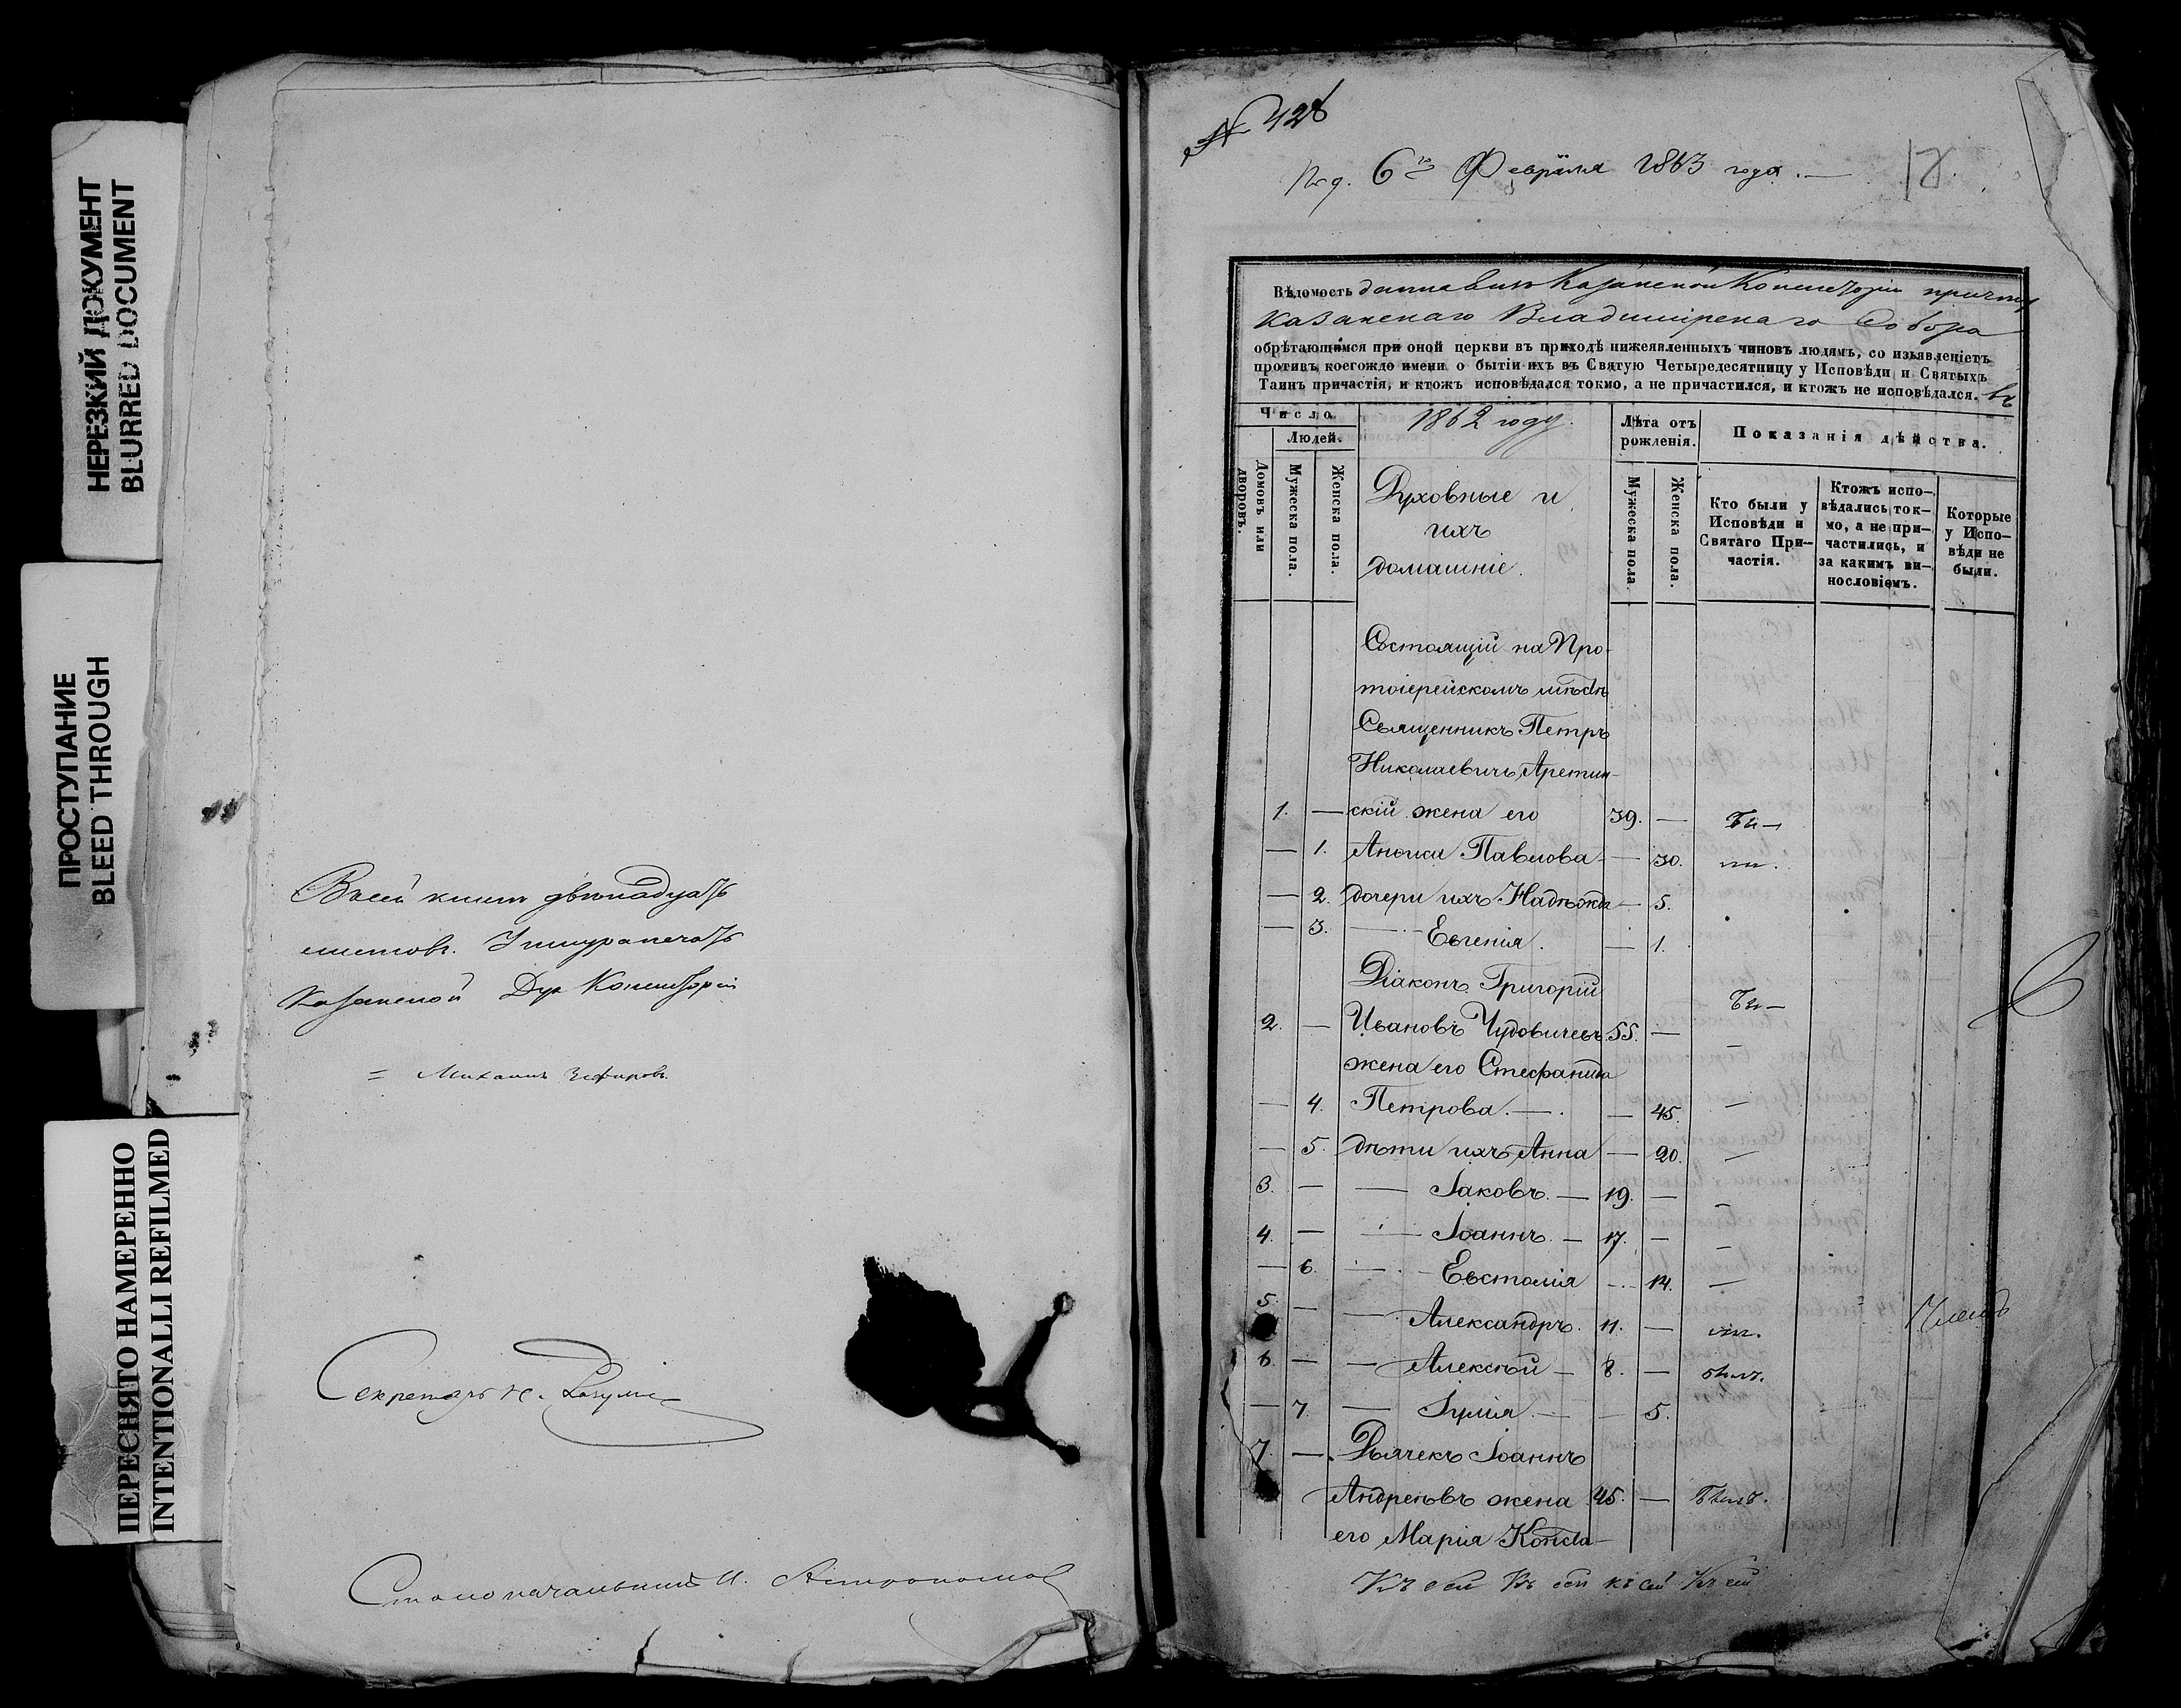 НЕРЕЗКИЙ ДОКУМЕНТ
BLURRED DOCUMENT
ПРОСТУПАНИЕ
BLEED THROUGH
ПЕРЕСНЯТО НАМЕРЕННО
INTENTIONALLI REFILMED
Въсей книге двенадцать
листовъ.
Казанской Дух Консисторіи
= Михаилъ Зефировъ.
Секретарь
Столоначальникъ И. Астрономов
№ 428
Под. 6го Февраля 1863 года. —
12
Вѣдомость Казанской Консисторіи причта
Казанскаго Владимірскаго Собора
обрѣтающимся при оной церкви въ приходѣ нижеявленныхъ чиновъ людямъ, со изъявленіетъ
противъ коегождо имени о бытіи ихъ въ Святую Четыредесятницу у Исповѣди и Святыхъ
Таинъ причастія, и ктожъ исповѣдался токмо, а не причастился, и ктожъ не исповѣдался. въ
Число
Людей.
Домовъ или дворовъ.
Мужеска пола.
Женска пола.
1862 году.
Духовные и
ихъ
домашніе.
Лѣта отъ
рожденія.
Мужеска пола
Женска пола.
Показанія дѣйства.
Кто были у
Исповѣди и
Святаго При-
частія.
Ктожъ испо-
вѣдались ток-
мо, а не при-
частились, и
за какимъ ви-
нословіемъ.
Которые
у Испо-
вѣди не
были.
Состоящій на Про-
тоіерейскомъ мѣстѣ
Священникъ Петръ
Николаевичъ Аретин-
1. — скій жена его 39. —
— 1. Анѳиса Павлова — — 30.
— 2. дочери ихъ Надѣжда — 5.
— 3. — Евгенія. — 1.
Діаконъ Григорій
2. — Ивановъ Чудовичевъ 55. —
жена его Стефанида
— 4. Петрова. — — 45. —
— 5. дѣти ихъ Анна — 20. —
3. — — Іаковъ. — 19. — —
4. — — Іоаннъ. — 17. — —
— 6. — Евстолія — 14. —
5. — — Александръ. 11. —
6. — — Алексѣй — 8. — былъ.
— 7. — Іулія. — — 5.
7. — Дьячекъ Іоаннъ
Андреевъ жена 45. — Былъ.
его Марія Конста-
Къ сей Къ сей къ сей Къ сей